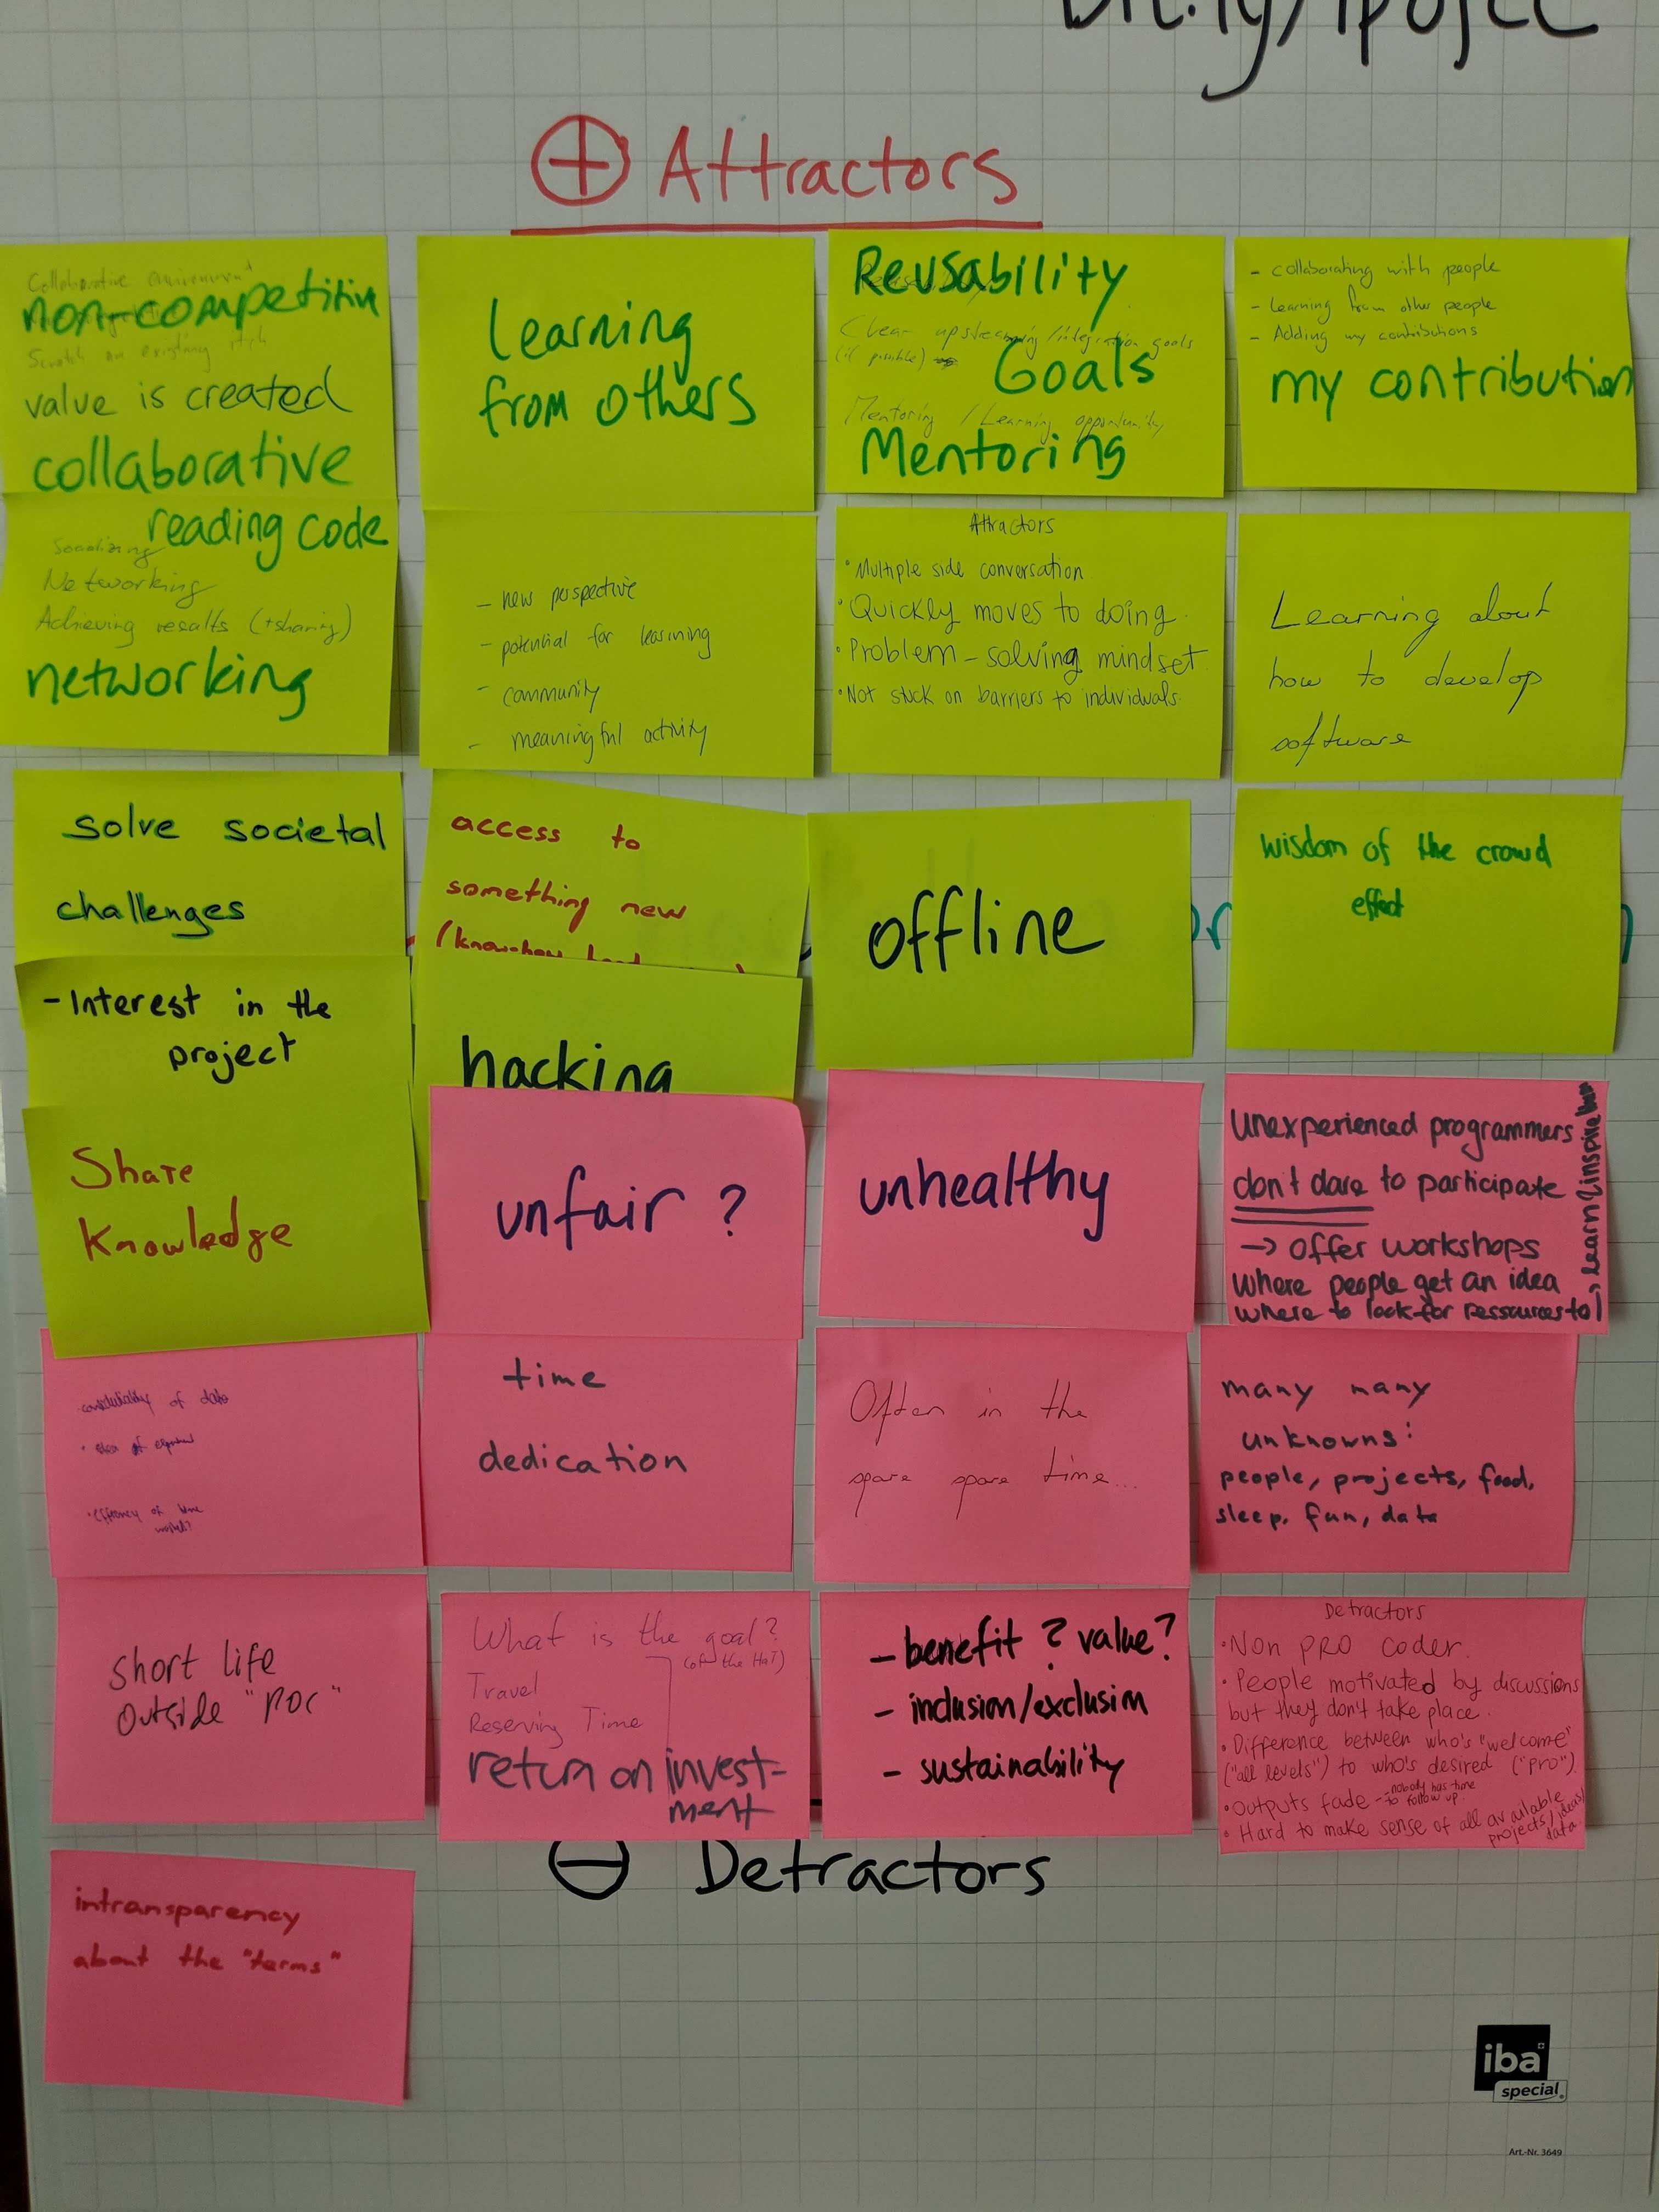 ⊕ Attractors
Collaborative environment
non-competitiv
Scratch an existing itch
value is created
collaborative
learning
from others
Reusability
Clear upstreaming/integration goals
(if possible)
Goals
Mentoring / Learning opportunity
Mentoring
- collaborating with people
- Learning from other people
- Adding my contributions
my contribution
reading code
Socializing
Networking
Achieving results (+sharing)
networking
- new perspective
- potential for learning
- community
- meaningful activity
Attractors
• Multiple side conversation
• Quickly moves to doing.
• Problem-solving mindset
• Not stuck on barriers to individuals.
Learning about
how to develop
software
solve societal
challenges
access to
something new
(know-how
offline
wisdom of the crowd
effect
- Interest in the
project
hacking
Share
Knowledge
unfair ?
unhealthy
Unexperienced programmers
don't dare to participate
→ Offer workshops
where people get an idea
where to look for ressources to
→ learn & inspire them
of data
• efficiency of time
time
dedication
Often in the
spare spare time...
many many
unknowns:
people, projects, food,
sleep, fun, data
short life
outside "POC"
What is the goal?
(of the HaT)
Travel
Reserving Time
return on invest-
ment
- benefit ? value?
- inclusion/exclusion
- sustainability
Detractors
• Non PRO coder.
• People motivated by discussions
but they don't take place.
• Difference between who's "welcome"
("all levels") to who's desired ("pro")
• Outputs fade - nobody has time
to follow up.
• Hard to make sense of all available
projects/ideas/
data
⊖ Detractors
intransparency
about the "terms"
iba
special
Art.-Nr. 3649